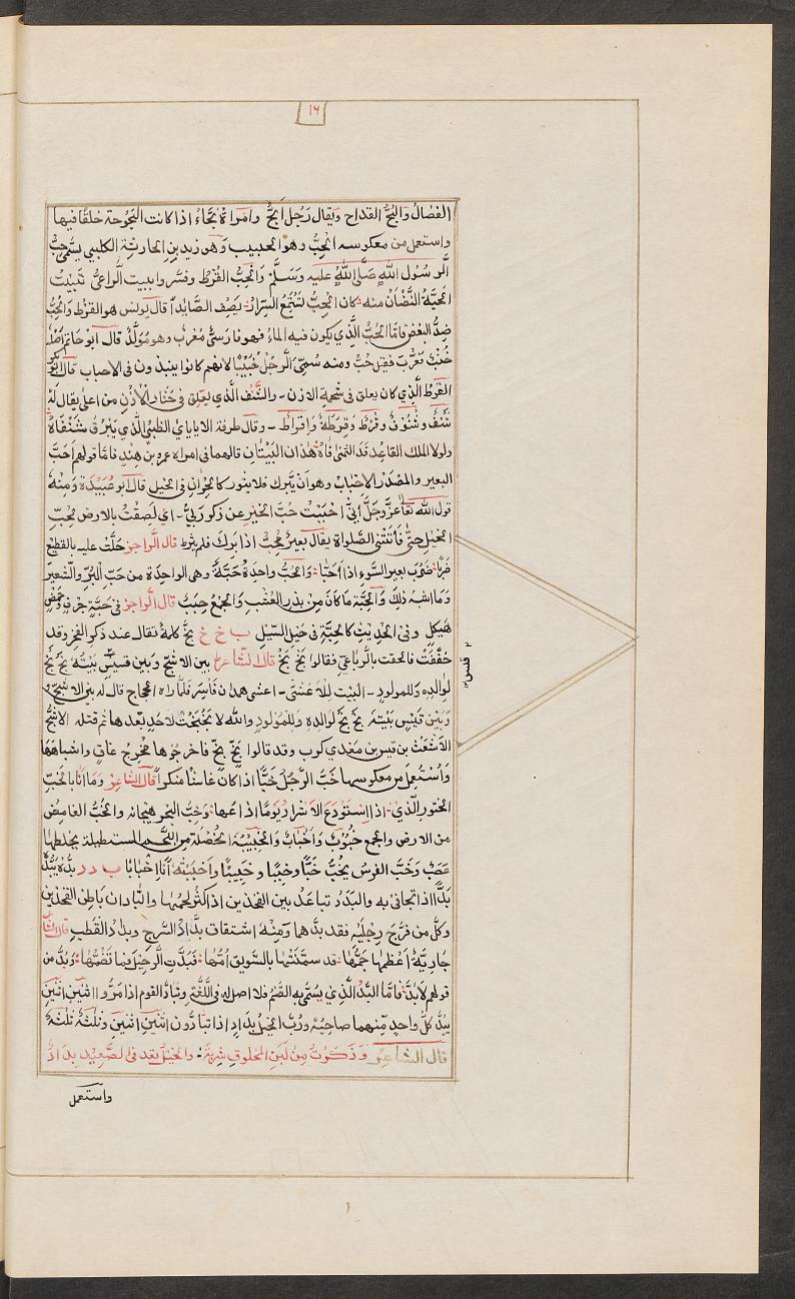 ١٦
الفصال والبُحُّ القداح ويقال رَجُل اَبَحُّ وامراة بَحَّاءُ اذا كانت البَحُوحة خلقًا فيها
واستعمل من معكوسه الحِبُّ وهو الحبيب وهو زيد بن الحارثة الكلبى يسمّى حِبُّ
الرسُول الله صَلَّى اللهُ عليه وَسَلَّمْ وَالحِبُّ القُرْطُ وفسّروا بيت الراعىُّ تَبِيْتُ
الحيّةُ النَّضْنَاضُ منه ؛ كان الحِبَّ تَسْتَمِعُ السِّرَارَ ؛ يَصِف الصَّائِدَ قال يونس هو القرط وَالحُبُّ
ضِدُّ البغض فامّا الحُبُّ الَّذِي يكون فيه الماءُ فهو فارسىٌّ مُعْرَبٌ وهو مُوَلَّدٌ قال ابو حاتم اَصْلُهُ
خُنْبٌ فعُرِّبَ فقيل حُبٌّ ومنه سُمِّىَ الرجُلُ خُنْبِيًّا لانهم كانوا ينبذون فى الاحباب قال ابو بكر
القُرْطُ الَّذِي كان يعلق فى شحمة الاذن ۔ والشَّنْف الَّذي يعلق فى حتار الْاُذْنِ من اعلى يقال لَهُ
شَنْفٌ وشُنُوْفٌ وقُرْطٌ وَقِرَطَةٌ وَاَقْرَاطٌ ۔ وقال طرفة الا بابي الظبىُ الَّذي يَبْرُقُ شَنْفَاهُ
ولولا الملك القاعِد قَدْ الثمنى فَاهُ هٰذان البَيْتَانِ قالهما فى امراة عمرو بن هِنْدٍ فامّا قولهم اَحَبَّ
البعير والمَصْدَرُ الِاحْبَابُ وهو اَنْ يَّبْرك فلا يثور كالحِرَانِ فى الخيل قال ابو عُبَيْدَة وَمِنْهُ
قول الله تعاٰ عزَّوَجَلَّ اِنِّىْ اَحْبَبْتُ حُبَّ الخَيْرِ عن ذكر رَبِّىْ ۔ اى لَصِقْتُ بالارض لِحُبِّ
الخَيْلِ حتّٰى فَاتَتْنى الصَّلواة يقال بعيرٌ مُحِبٌّ اذا بَرَكَ فلم يثر قال الراجز حَلْتَ عليه بالقطيع
ضَربًا ؛ ضَرْبَ بعير السَّوءِ اذا اَحَبَّا ؛ وَالحَبُّ واحدةٌ حَبَّةٌ وهى الواحدة من حَبِّ البُرِّ والشَّعيرِ
وَمَا اشبهَ ذٰلكَ وَالحِبَّةُ مَا كَانَ مِنْ بذر العُشْبِ وَالجمعُ حِبَبٌ قال الراجز فى حِبَّةٍ جرفٍ وَحَمْضٍ
هَيْكلِ وفى الحديث كالحِبَّةِ فى حَمِيْل السَّيْلِ ب خ خ بَخْ كلمةٌ تقال عند ذكر الفخر وقد
خُفِّفَتْ فالحقت بالرُّباعىِّ فقالوا بَخْ بَخْ قال الشاعر بين الاشجِّ وبَيْن قيسٍ بَيْتُهُ بَخْ بَخْ
لوالِدِهٖ وَللمولودِ ۔ البيت للاعشى ۔ اعشى همدان فاَسَرَ فلمّا راٰه الحجاج قال له بين الاشجِّ
وَبَيْن قَيْسٍ بَيْتُهُ بَخْ بَخْ لوالِدِهٖ وَلِلمَوْلودِ وَالله لا بَخْبَخْتَ لاحدٍ بعدها ثم قتله الاشجُّ
الاَشْعَثُ بن قيس بن مَعْدِي كرب وقد قالوا بَخٍّ بَخٍّ فاخرجُوها مُخرَج غاقٍ واشباهها
وَاسْتُعمِلَ من معكوسها خَبَّ الرَّجُلُ خَبًّا اذا كانَ غاشًّا منكرًا قال الشاعر وَمَا اَنَا بالخَبِّ
الختُور الَّذِي ؛ اذا استُودِعَ الاَسْرارَ يَوْمًا اذاعها ؛ وَخِبُّ البحر هَيَجانه والخُبُّ الغامِضُ
من الارض والجمع خُبُوْبٌ وَاَخْبَابٌ وَالخَبِيْبَةُ الخُصْلَة من اللَّحْمِ المستطيلة يخلطها
عَصَبٌ وَخَبَّ الفرسُ يَخُبُّ خَبًّا وخَبَبًا وخَبِيبًا وَاَخبَبْتُهُ اَنَا اِخْبَابًا ب د د بدّه يَبُدُّهُ
بَدًّا اذا تجافى به والبَدَدُ تباعُدُ بين الفخذين اذا كثر لحمُها والبادان باطن الفخذين
وكلُّ من فَرَّجَ رِجْلَيْهِ فقد بدَّهما ومنهُ اشتقاق بدادُ السَّرجِ وبدادُ القَطَبِ قال الشاعر
جاريَةٌ اَعْظَمُها جَمُّها ؛ قد سمَّنَتْها بالسَّويق اُمُّها ؛ فَبَدَّتِ الرِّجْلَ فما تَضُمُّها ؛ وَبُدَّ من
قولهم لا بُدَّ فامّا البُدُّ الَّذِي يُسَمّٰى به الصَّنَمُ فلا اصل له فى اللُّغَةِ وتبادَّ القوم اذا مَرُّوا اثنَيْنِ اثنَيْنِ
يبُدُّ كلُّ واحدٍ منهما صاحِبَهُ وَرُبَّ الخَيْلُ بِدَادٍ اذا تبادُّوْن اثْنَيْنِ اثْنَيْنِ وَثلٰثَةً ثلٰثَةً
قال الشاعر وَذَكَرْتَ مِنْ لَبَنِ المحلوقِ شرْبَةً ؛ والخيل تعد فى الصَّعِيْدِ بِدَادُ
واستعمل